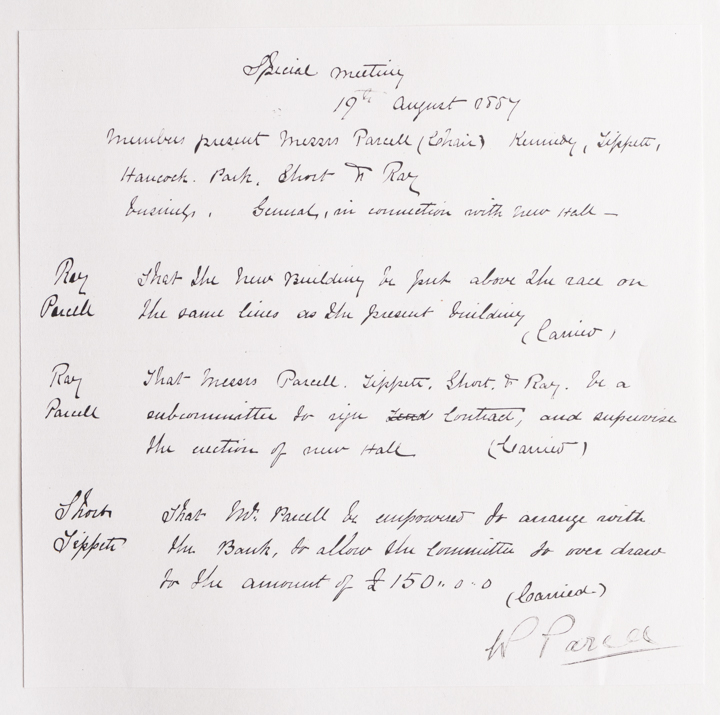 Special meeting
19th August 1887
Members present Messrs Parcell (Chair) Kennedy, Tippett,
Hancock. Park. Short & Ray
business. General, in connection with new Hall —
Ray That the New Building be put above the race on
Parcell the same lines as the present building
(Carried)
Ray That Messrs Parcell. Tippett. Short. & Ray. be a
Parcell subcommittee to sign Contract, and supervise
the erection of new Hall (Carried)
Short That Mr. Parcell be empowered to arrange with
Tippett the Bank, to allow the Committee to over draw
to the amount of £150..0.0 (Carried.)
W Parcell